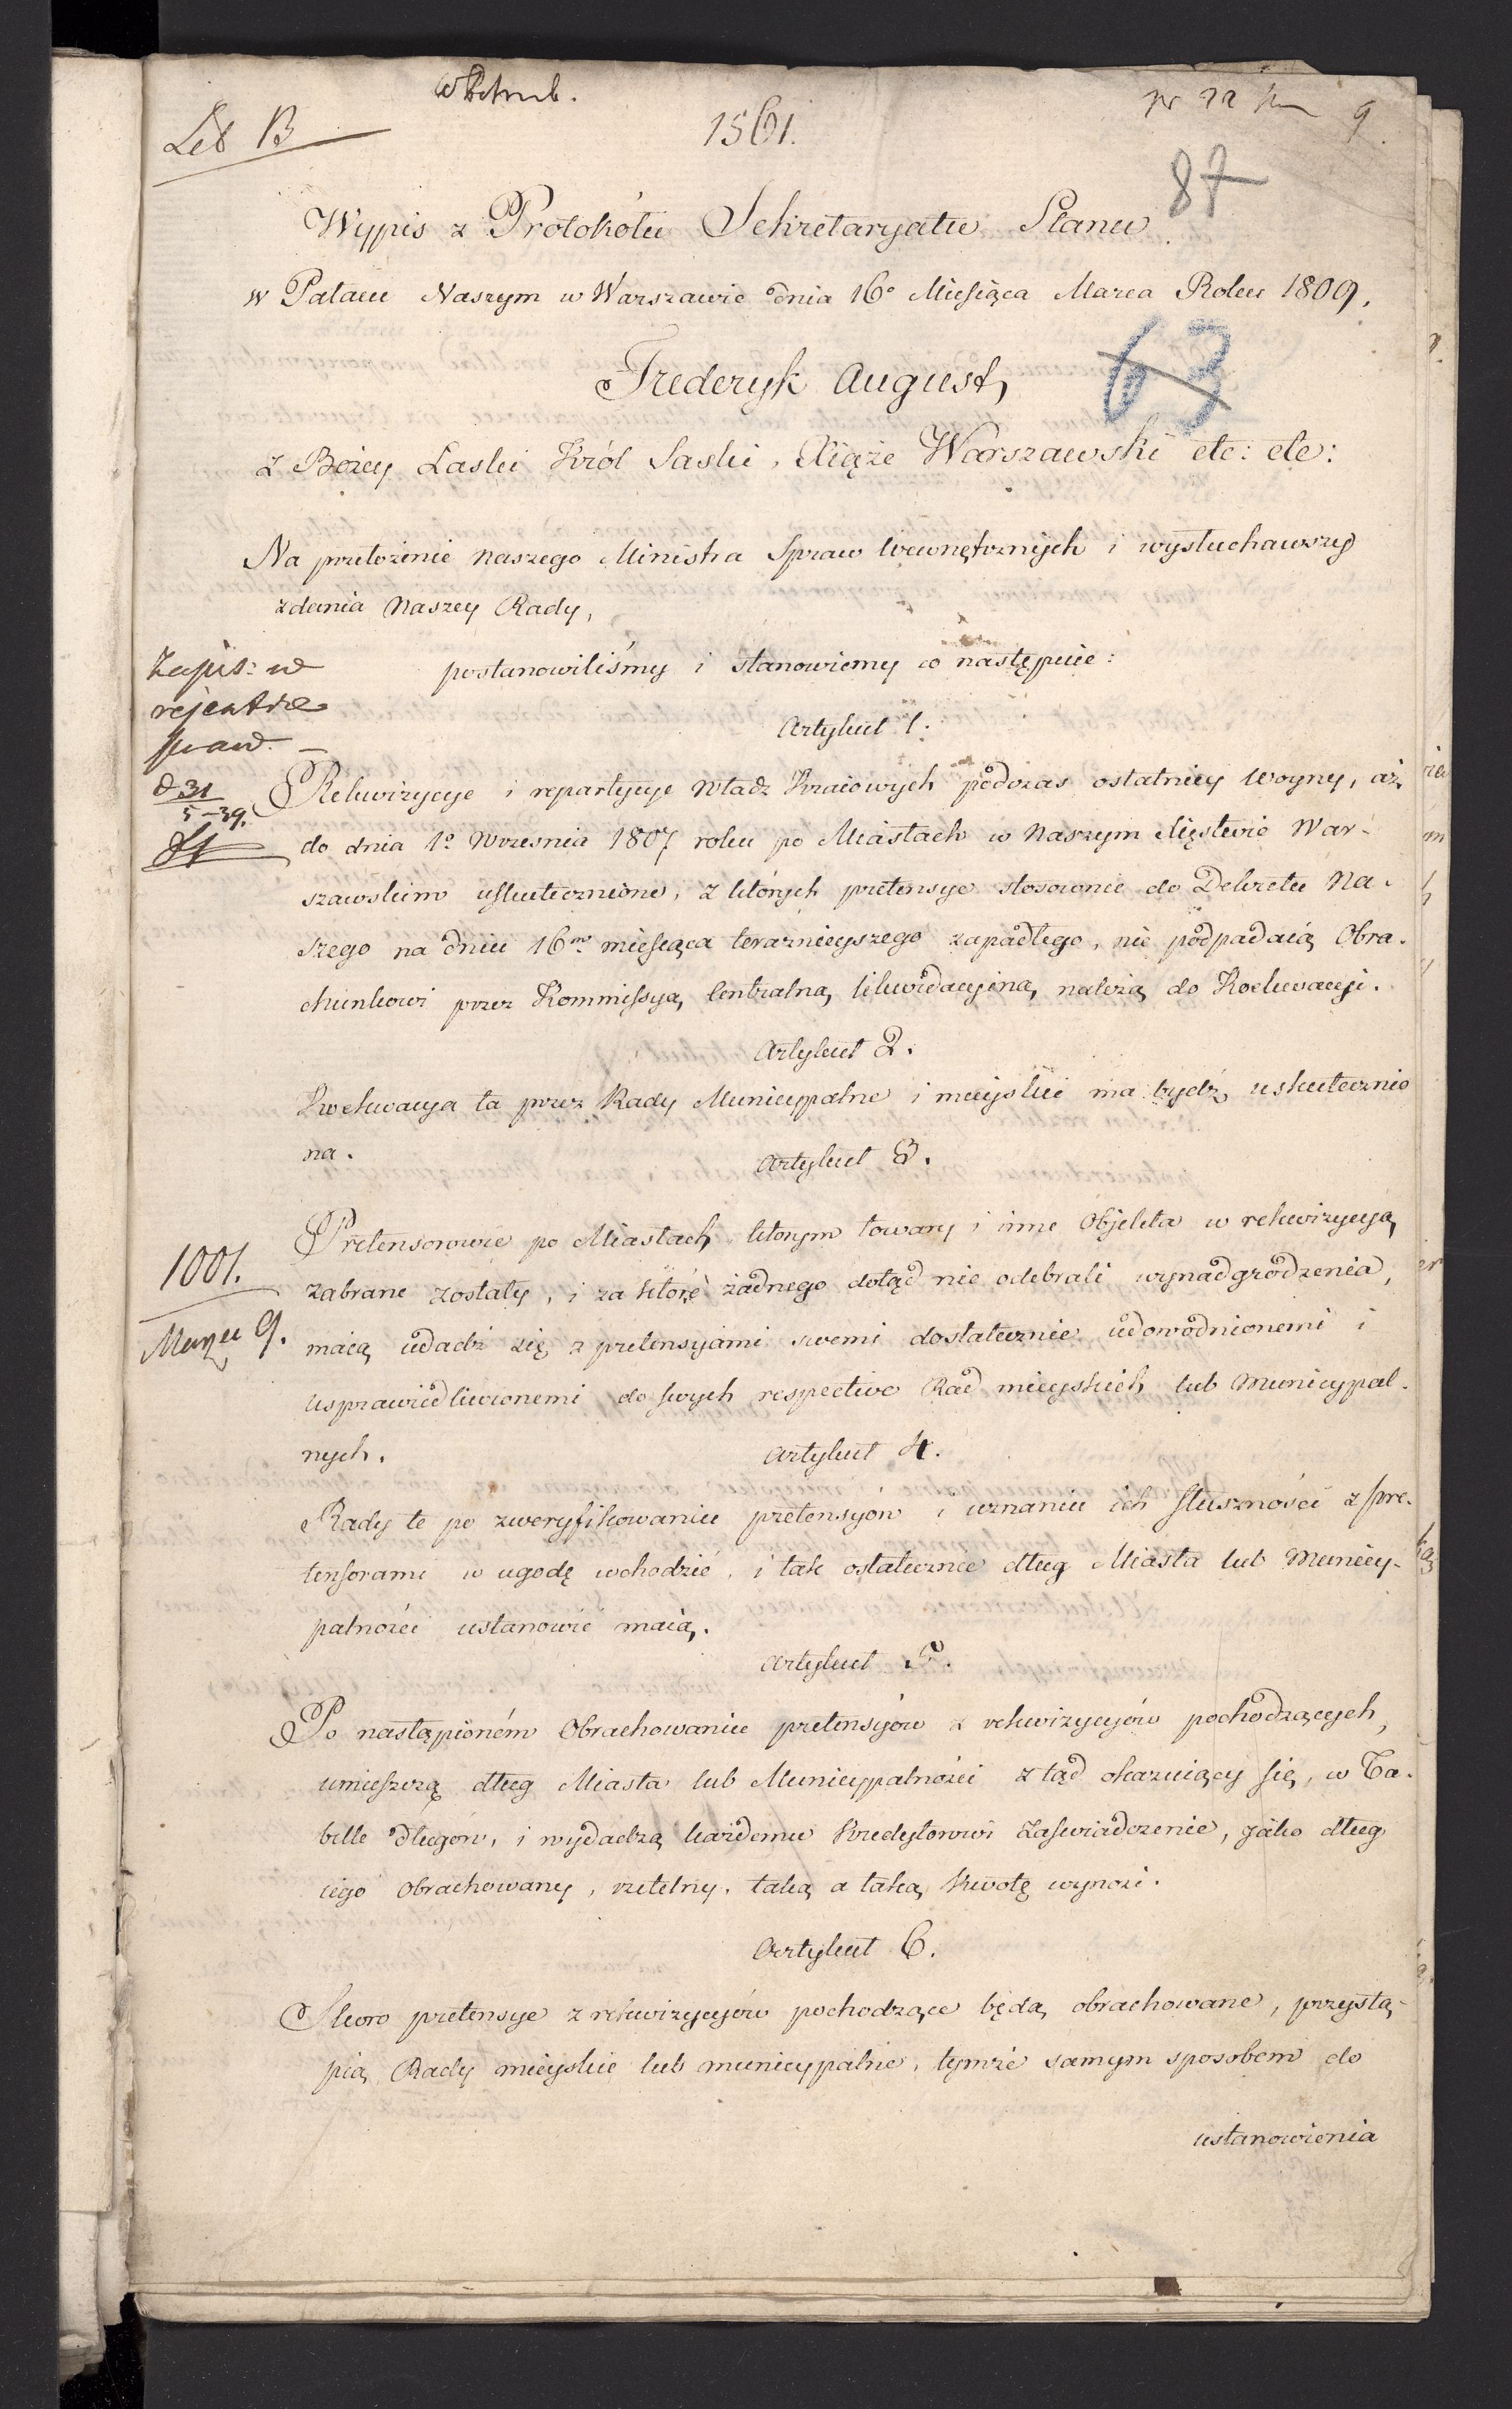 Lit B
1561.
9
87
Wypis z Protokółu Sekretaryatu Stanu
w Pałacu Naszym w Warszawie dnia 16º Miesiąca Marca Roku 1809.
63
Frederyk August,
z Bożey Łaski Król Saski, Xiąże Warszawski etc: etc:
Na przełożenie naszego Ministra Spraw Wewnętrznych i wysłuchawszy
zdania Naszey Rady,
postanowiliśmy i stanowiemy co następuie:
Zapis: w
rejestrze
spraw. —
d 31
5-39.
Artykuł 1.
Rekwizycye i repartycye Władz Kraiowych podczas ostatniey woyny, aż
do dnia 1º Wrzesnia 1807 roku po Miastach w Naszym Xięstwie War-
szawskim uskutecznione, z których pretensye stosownie do Dekretu Na-
szego na dniu 16m miesiąca teraznieyszego zapadłego, nie podpadaią Obra-
chunkowi przez Kommissyą Centralną likwidacyiną, należą do Koekwacyi.
Artykuł 2.
Koekwacya ta przez Rady Municypalne i mieyskie ma bydź uskutecznio
na.
Artykuł 3.
1001.
Marzec 9.
Pretensorowie po Miastach którym towary i inne Objekta w rekwizycyą
zabrane zostały, i za które żadnego dotąd nie odebrali wynadgrodzenia,
maią udadź się z pretensyami swemi dostatecznie udowodnionemi i
usprawiedliwionemi do swych respective Rad mieyskich lub Municypal-
nych.
Artykuł 4.
Rady te po zweryfikowaniu pretensyów i uznaniu ich słuszności z pre-
tensorami w ugodę wchodzić, i tak ostatecznie dług Miasta lub Municy-
palności ustanowić maią.
Artykuł 5.
Po nastąpioném Obrachowaniu pretensyów z rekwizycyów pochodzących,
umieszczą dług Miasta lub Municypalności ztąd okazuiący się, w Ta-
belle długów, i wydadzą każdemu Kredytorowi Zaświadczenie, jako dług
iego obrachowany, rzetelny, taką a taką kwotę wynosi.
Artykuł 6.
Skoro pretensye z rekwizycyów pochodzące będą obrachowane, przystą-
pią Rady mieyskie lub municypalne, tymże samym sposobem do
ustanowienia